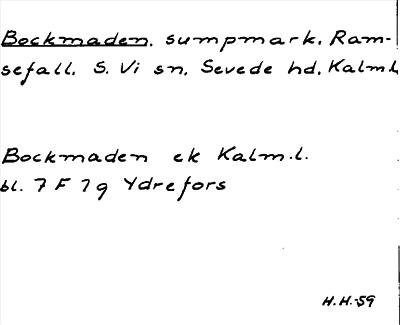 Bockmaden. sumpmark. Ram-
sefall. S. Vi sn. Sevede hd. Kalm.l.
Bockmaden ek Kalm.l.
bl. 7 F 7g Ydrefors
H.H.-59